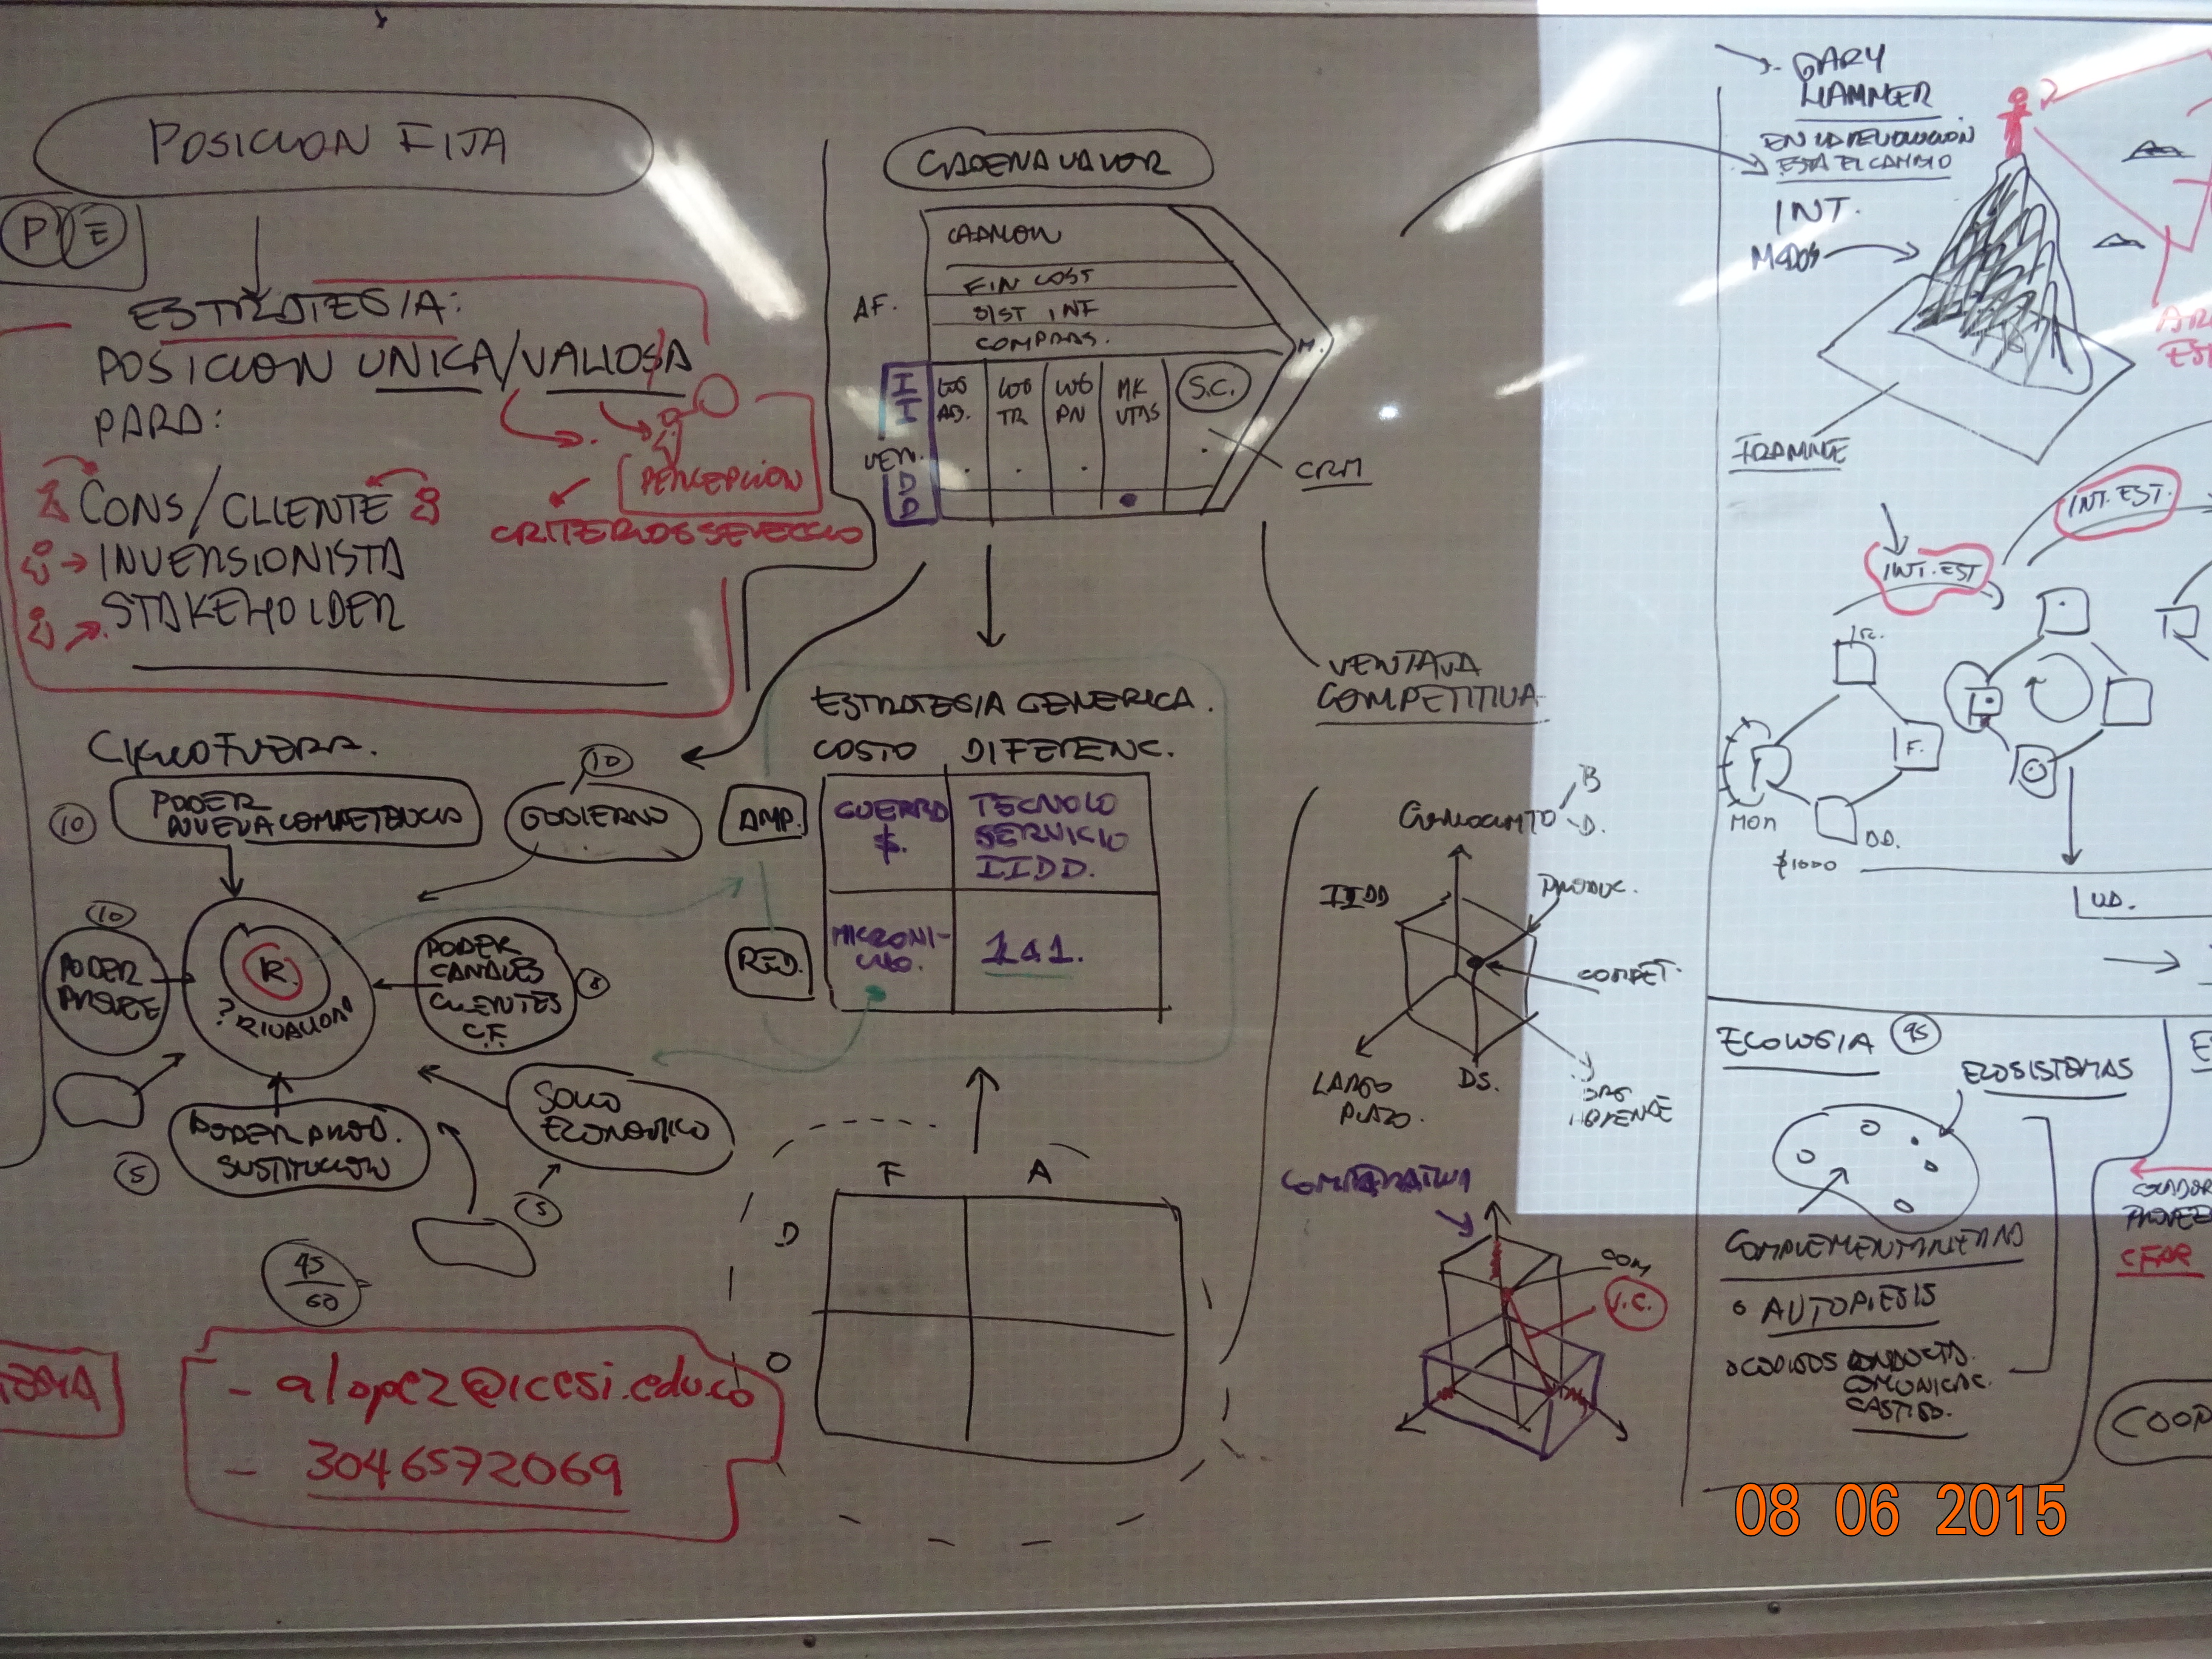 POSICION FIJA
P E
ESTRATEGIA:
POSICION UNICA/VALIOSA
PARA:
CONS/CLIENTE
INVERSIONISTA
STAKEHOLDER
PERCEPCION
CRITERIOS
CADENA VALOR
FIN COST
SIST INF
COMPRAS.
AF.
M.
IIDD
VEN.
LOG AD.
LOG TR
LOG PN
MK VTAS
S.C.
CRM
VENTAJA
COMPETITIVA
ESTRATEGIA GENERICA.
COSTO DIFERENC.
AMP.
GUERRA
$.
TECNOLO
SERVICIO
IIDD.
RED.
MICRONI-
1 a 1.
PODER
NUEVA COMPETENCIA
10
GOBIERNO
10
10
PODER
PROVEE
R.
?
PODER
CANALES
CLIENTES
C.F.
PODER PROD.
SUSTITUCION
5
ECONOMICO
5
45
60
- alopez@icesi.edu.co
- 3046572069
F A
D
O
B
D.
IIDD
PRODUC.
COMPET.
LARGO
PLAZO.
DS.
COMPARATIVA
COM
V.C.
GARY
HAMMER
EN LA REVOLUCION
ESTA EL CAMBIO
INT.
MCDOS
INT. EST.
INT. EST
F.
MON
DD.
$1000
UD.
ECOLOGIA 95
ECOSISTEMAS
AUTOPIESIS
CODIGOS CONDUCTA.
COMUNICAC.
CASTIGO.
COOP
08 06 2015